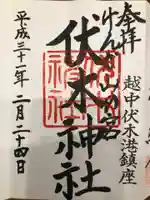 奉拝
越中伏木港鎮座
伏木神社
平成三十一年二月二十四日